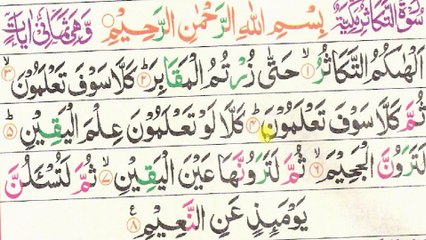 سُوْرَةُ التَّكَاثُرِ مَكِّيَّةٌ بِسْمِ اللهِ الرَّحْمٰنِ الرَّحِيْمِ وَّهِيَ ثَمَانِيْ اٰيَاتٍ
اَلْهٰىكُمُ التَّكَاثُرُ ۙ۱ حَتّٰى زُرْتُمُ الْمَقَابِرَ ؕ۲ كَلَّا سَوْفَ تَعْلَمُوْنَ ۙ۳
ثُمَّ كَلَّا سَوْفَ تَعْلَمُوْنَ ؕ۴ كَلَّا لَوْ تَعْلَمُوْنَ عِلْمَ الْيَقِيْنِ ؕ۵
لَتَرَوُنَّ الْجَحِيْمَ ۙ۶ ثُمَّ لَتَرَوُنَّهَا عَيْنَ الْيَقِيْنِ ۙ۷ ثُمَّ لَتُسْـَٔلُنَّ
يَوْمَىِٕذٍ عَنِ النَّعِيْمِ ۸ ع